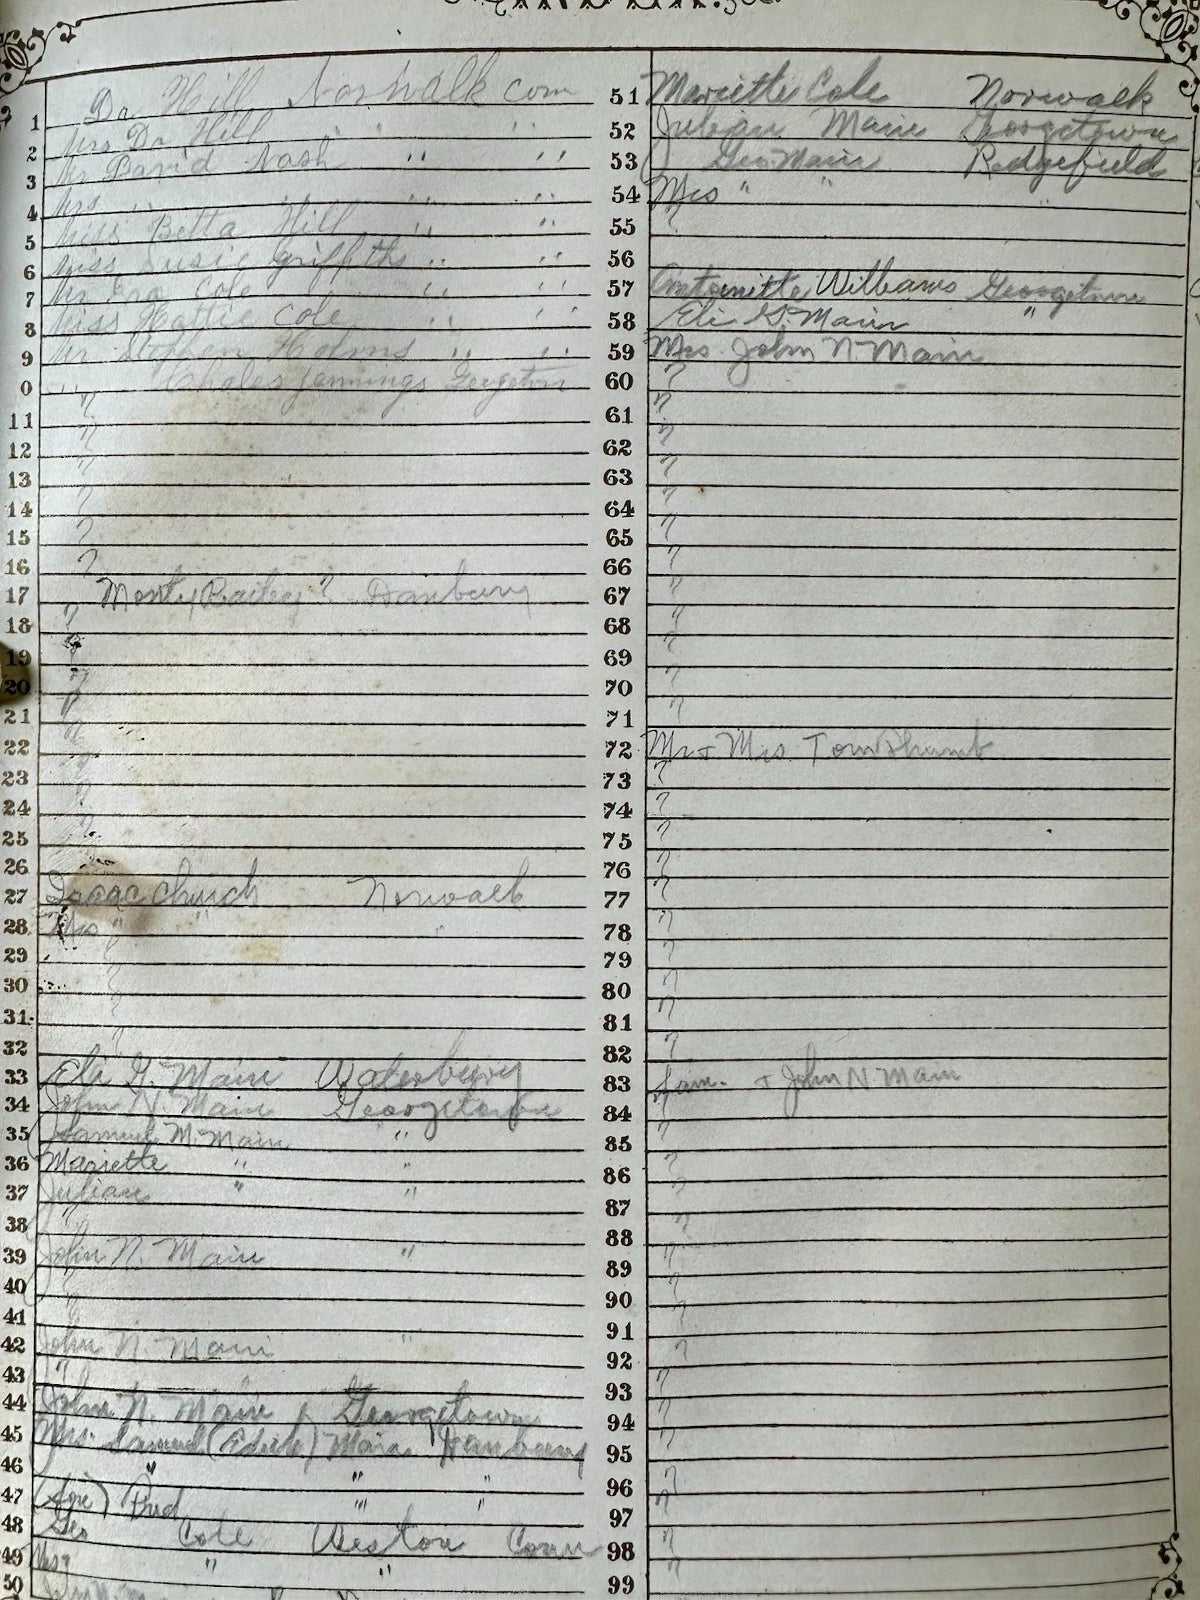 INDEX.
1 Dr Hill Norwalk conn
2 Mrs Dr Hill " "
3 Mr David Nash " "
4 Mrs " " " "
5 Miss Betta Hill " "
6 Miss Susie Griffiths " "
7 Mr Cole " "
8 Miss Hattie Cole " "
9 Mr Stephen Holms " "
0 " Chales Jennings Georgeton
11 ?
12 ?
13 ?
14 ?
15 ?
16 ?
17 Monty Bailey ? Danbury
18 ?
19
20 ?
21 ?
22 ?
23 ?
24 ?
25 ?
26
27 Isaac Church Norwalk
28 Mrs " " "
29 ?
30 ?
31 ?
32 ?
33 Eli G. Main Waterbury
34 John N. Main Georgetown
35 Samuel M. Main "
36 Mariette " "
37 Julian " "
38 "
39 John N. Main "
40 ?
41
42 John N. Main "
43 "
44 John N. Main Georgetown
45 Mrs. Samuel (Edith) Main Danbury
46 " " "
47 Bud " "
48 Geo Cole Weston Conn
49 " "
50
51 Mariette Cole Norwalk
52 Julian Main Georgetown
53 Geo Main Redgefield
54 Mrs " " "
55 ?
56
57 Antoinette Williams Georgetown
58 Eli G. Main "
59 Mrs John N Main
60 ?
61 ?
62 ?
63 ?
64 ?
65 ?
66 ?
67 ?
68 ?
69 ?
70 ?
71 ?
72 Mr & Mrs Tom Thumb
73 ?
74 ?
75 ?
76 ?
77 ?
78 ?
79 ?
80 ?
81 ?
82 ?
83 Sam. & John N Main
84 ?
85 ?
86 ?
87 ?
88 ?
89 ?
90 ?
91 ?
92 ?
93 ?
94 ?
95 ?
96 ?
97 ?
98 ?
99 ?